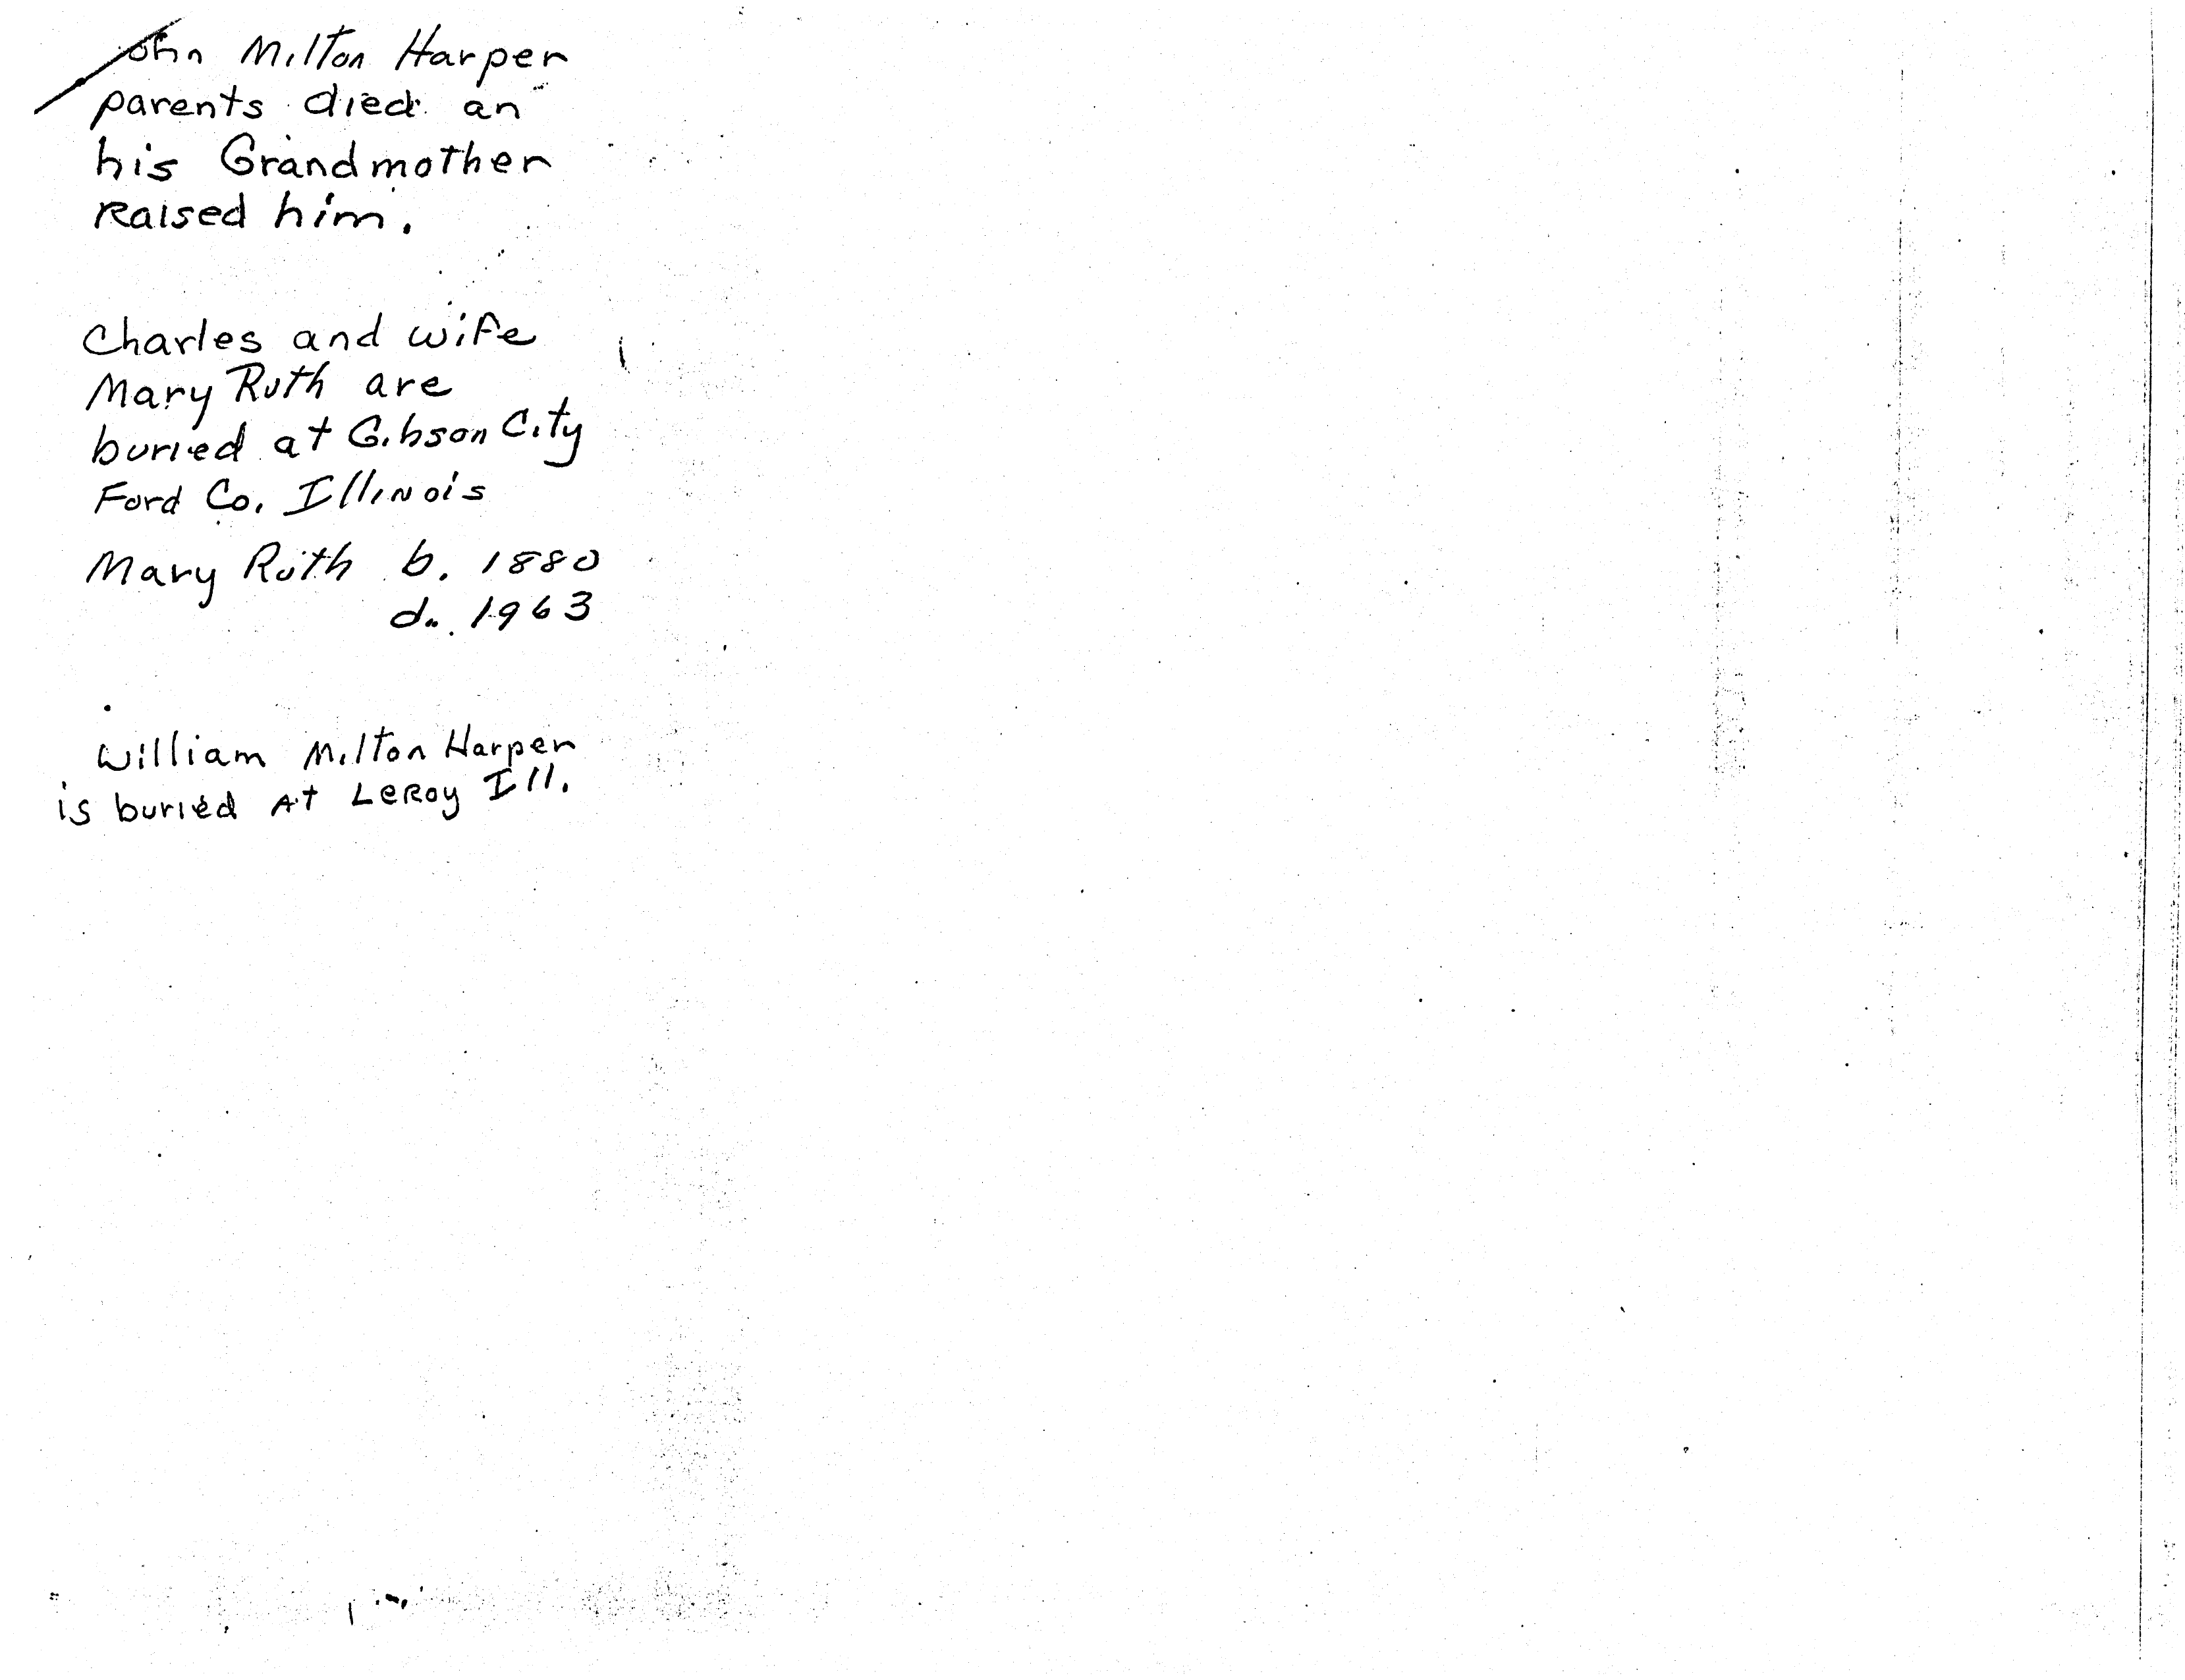 John Milton Harper
parents died an
his Grandmother
Raised him.
Charles and wife
Mary Ruth are
buried at Gibson City
Ford Co. Illinois
Mary Ruth b. 1880
d. 1963
William Milton Harper
is buried At LeRoy Ill.